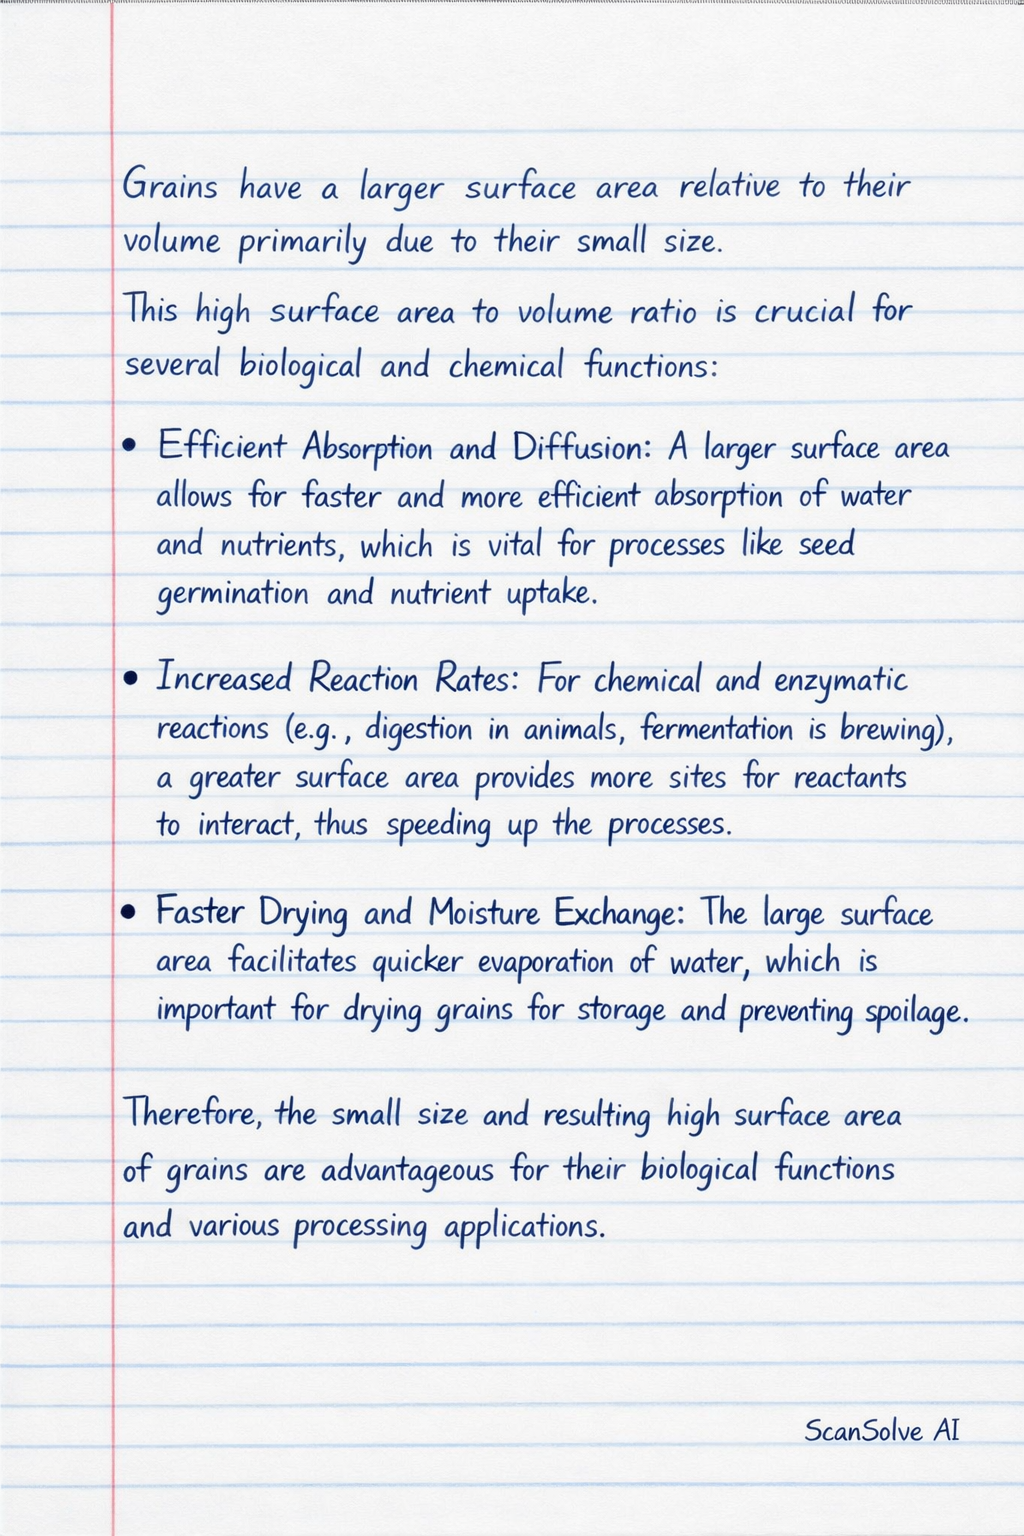 Grains have a larger surface area relative to their
volume primarily due to their small size.
This high surface area to volume ratio is crucial for
several biological and chemical functions:
• Efficient Absorption and Diffusion: A larger surface area
allows for faster and more efficient absorption of water
and nutrients, which is vital for processes like seed
germination and nutrient uptake.
• Increased Reaction Rates: For chemical and enzymatic
reactions (e.g., digestion in animals, fermentation is brewing),
a greater surface area provides more sites for reactants
to interact, thus speeding up the processes.
• Faster Drying and Moisture Exchange: The large surface
area facilitates quicker evaporation of water, which is
important for drying grains for storage and preventing spoilage.
Therefore, the small size and resulting high surface area
of grains are advantageous for their biological functions
and various processing applications.
ScanSolve AI